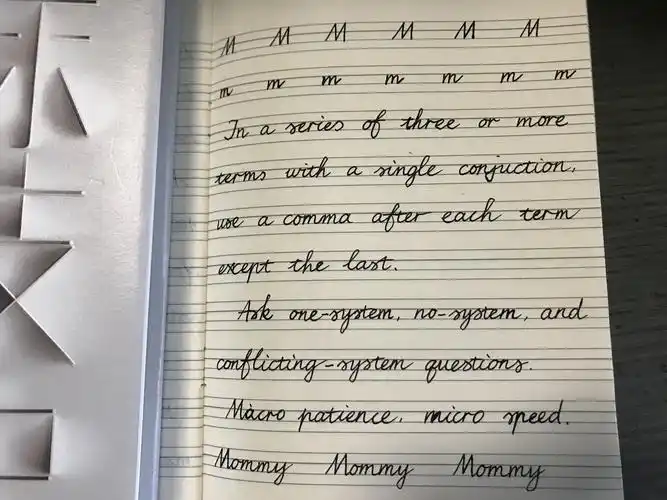 M M M M M M
m m m m m m m
In a series of three or more
terms with a single conjuction,
use a comma after each term
except the last.
Ask one-system, no-system, and
conflicting-system questions.
Macro patience, micro speed.
Mommy Mommy Mommy